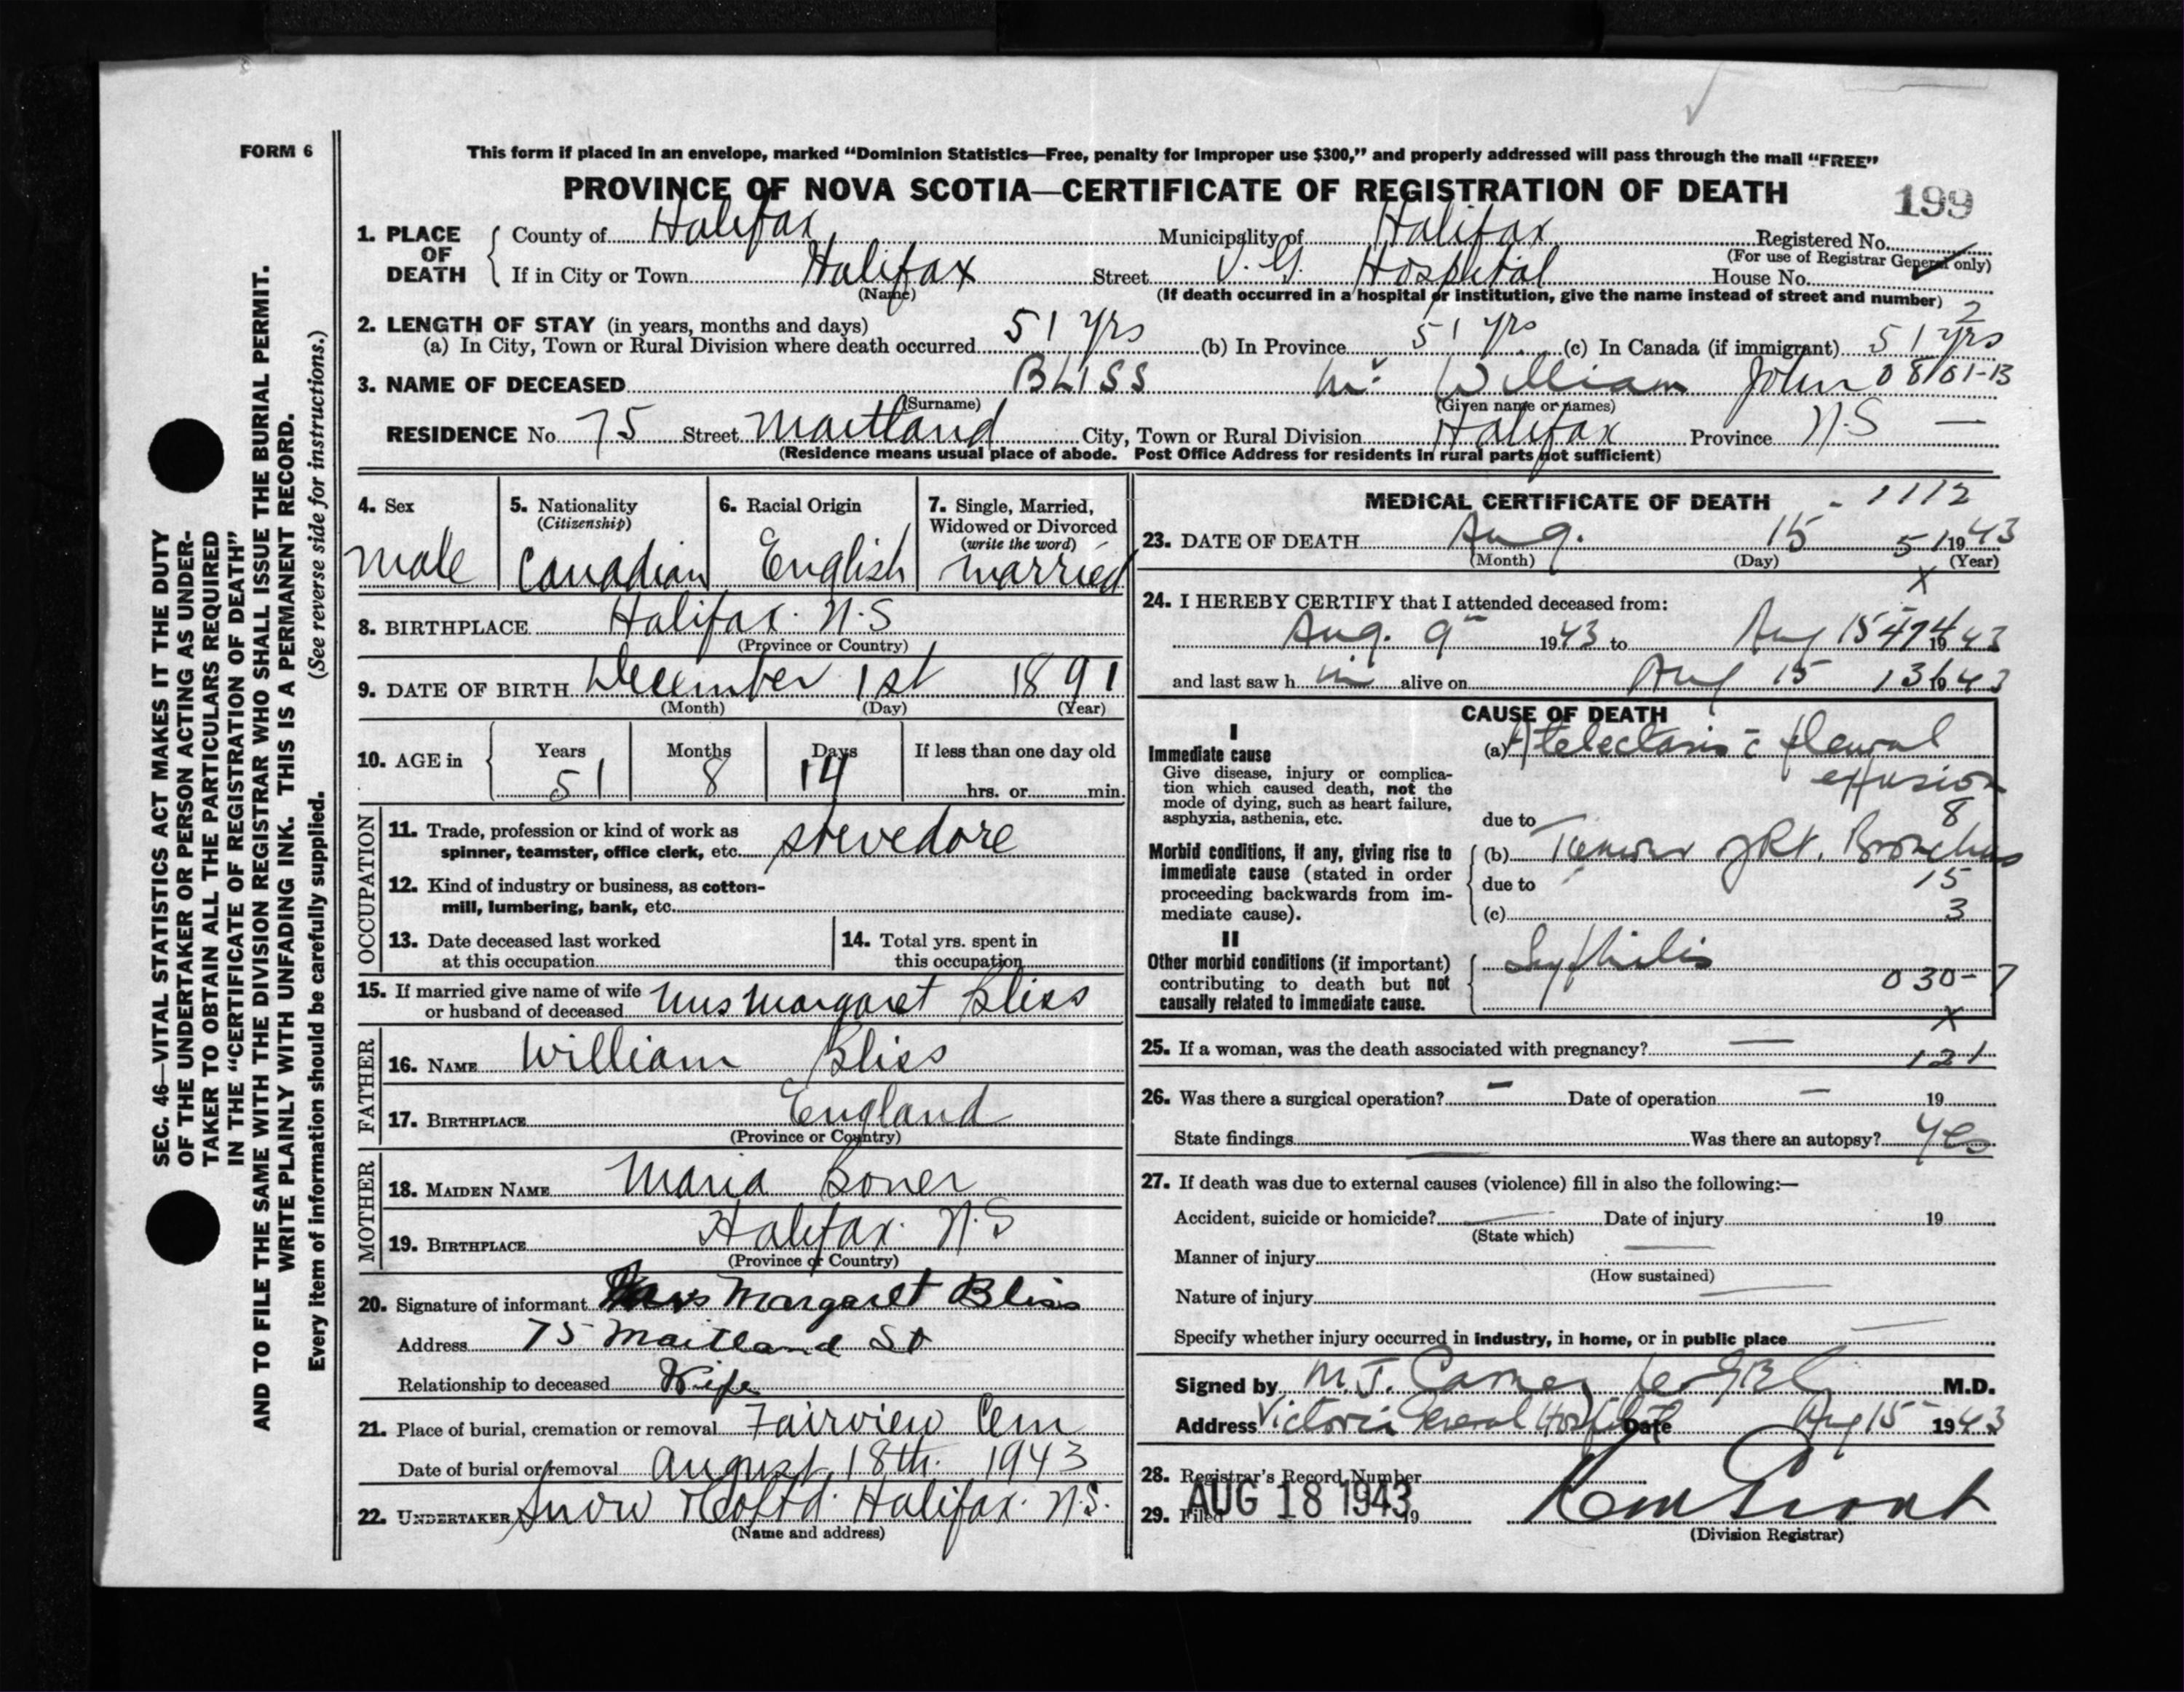 FORM 6
This form if placed in an envelope, marked “Dominion Statistics—Free, penalty for improper use $300,” and properly addressed will pass through the mail “FREE”
PROVINCE OF NOVA SCOTIA—CERTIFICATE OF REGISTRATION OF DEATH
199
1. PLACE OF DEATH County of Halifax Municipality of Halifax Registered No.
(For use of Registrar General only)
If in City or Town Halifax Street V. G. Hospital House No.
(Name) (If death occurred in a hospital or institution, give the name instead of street and number)
2
2. LENGTH OF STAY (in years, months and days)
(a) In City, Town or Rural Division where death occurred 51 yrs (b) In Province 51 yrs (c) In Canada (if immigrant) 51 yrs
3. NAME OF DECEASED BLISS Mr William John 08101-13
(Surname) (Given name or names)
RESIDENCE No. 75 Street Maitland City, Town or Rural Division Halifax Province N.S —
(Residence means usual place of abode. Post Office Address for residents in rural parts not sufficient)
4. Sex
male
5. Nationality
(Citizenship)
Canadian
6. Racial Origin
English
7. Single, Married, Widowed or Divorced
(write the word)
married
8. BIRTHPLACE Halifax. N.S
(Province or Country)
9. DATE OF BIRTH December 1st 1891
(Month) (Day) (Year)
10. AGE in Years Months Days If less than one day old
51 8 14 hrs. or min.
OCCUPATION
11. Trade, profession or kind of work as
spinner, teamster, office clerk, etc. stevedore
12. Kind of industry or business, as cotton-
mill, lumbering, bank, etc.
13. Date deceased last worked
at this occupation
14. Total yrs. spent in
this occupation
15. If married give name of wife
or husband of deceased Mrs Margaret Bliss
FATHER
16. NAME William Bliss
17. BIRTHPLACE England
(Province or Country)
MOTHER
18. MAIDEN NAME Maria Boner
19. BIRTHPLACE Halifax. N.S
(Province or Country)
20. Signature of informant Mrs Margaret Bliss
Address 75 Maitland St
Relationship to deceased Wife
21. Place of burial, cremation or removal Fairview Cem
Date of burial or removal August 18th. 1943
22. UNDERTAKER Snow & Co Ltd. Halifax. N.S.
(Name and address)
MEDICAL CERTIFICATE OF DEATH - 1112
23. DATE OF DEATH Aug. 15 51 1943
(Month) (Day) (Year)
x
24. I HEREBY CERTIFY that I attended deceased from:
Aug. 9 1943 to Aug 15 474 1943
and last saw h im alive on Aug 15 136 1943
CAUSE OF DEATH
I
Immediate cause
Give disease, injury or complica-
tion which caused death, not the
mode of dying, such as heart failure,
asphyxia, asthenia, etc.
(a) Atelectasis c pleural
effusion
8
due to
Morbid conditions, if any, giving rise to
immediate cause (stated in order
proceeding backwards from im-
mediate cause).
(b) Tumour of Rt. Bronchus
due to 15
(c) 3
II
Other morbid conditions (if important)
contributing to death but not
causally related to immediate cause.
Syphilis
030-7
x
25. If a woman, was the death associated with pregnancy? — 121
26. Was there a surgical operation? — Date of operation — 19
State findings Was there an autopsy? Yes
27. If death was due to external causes (violence) fill in also the following:—
Accident, suicide or homicide? Date of injury 19
(State which)
Manner of injury
(How sustained)
Nature of injury
Specify whether injury occurred in industry, in home, or in public place
Signed by M.J. M.D.
Address Victoria General Hospital Date Aug 15 1943
28. Registrar's Record Number
29. Filed AUG 18 1943 19
(Division Registrar)
SEC. 46—VITAL STATISTICS ACT MAKES IT THE DUTY
OF THE UNDERTAKER OR PERSON ACTING AS UNDER-
TAKER TO OBTAIN ALL THE PARTICULARS REQUIRED
IN THE “CERTIFICATE OF REGISTRATION OF DEATH”
AND TO FILE THE SAME WITH THE DIVISION REGISTRAR WHO SHALL ISSUE THE BURIAL PERMIT.
WRITE PLAINLY WITH UNFADING INK. THIS IS A PERMANENT RECORD.
Every item of information should be carefully supplied. (See reverse side for instructions.)